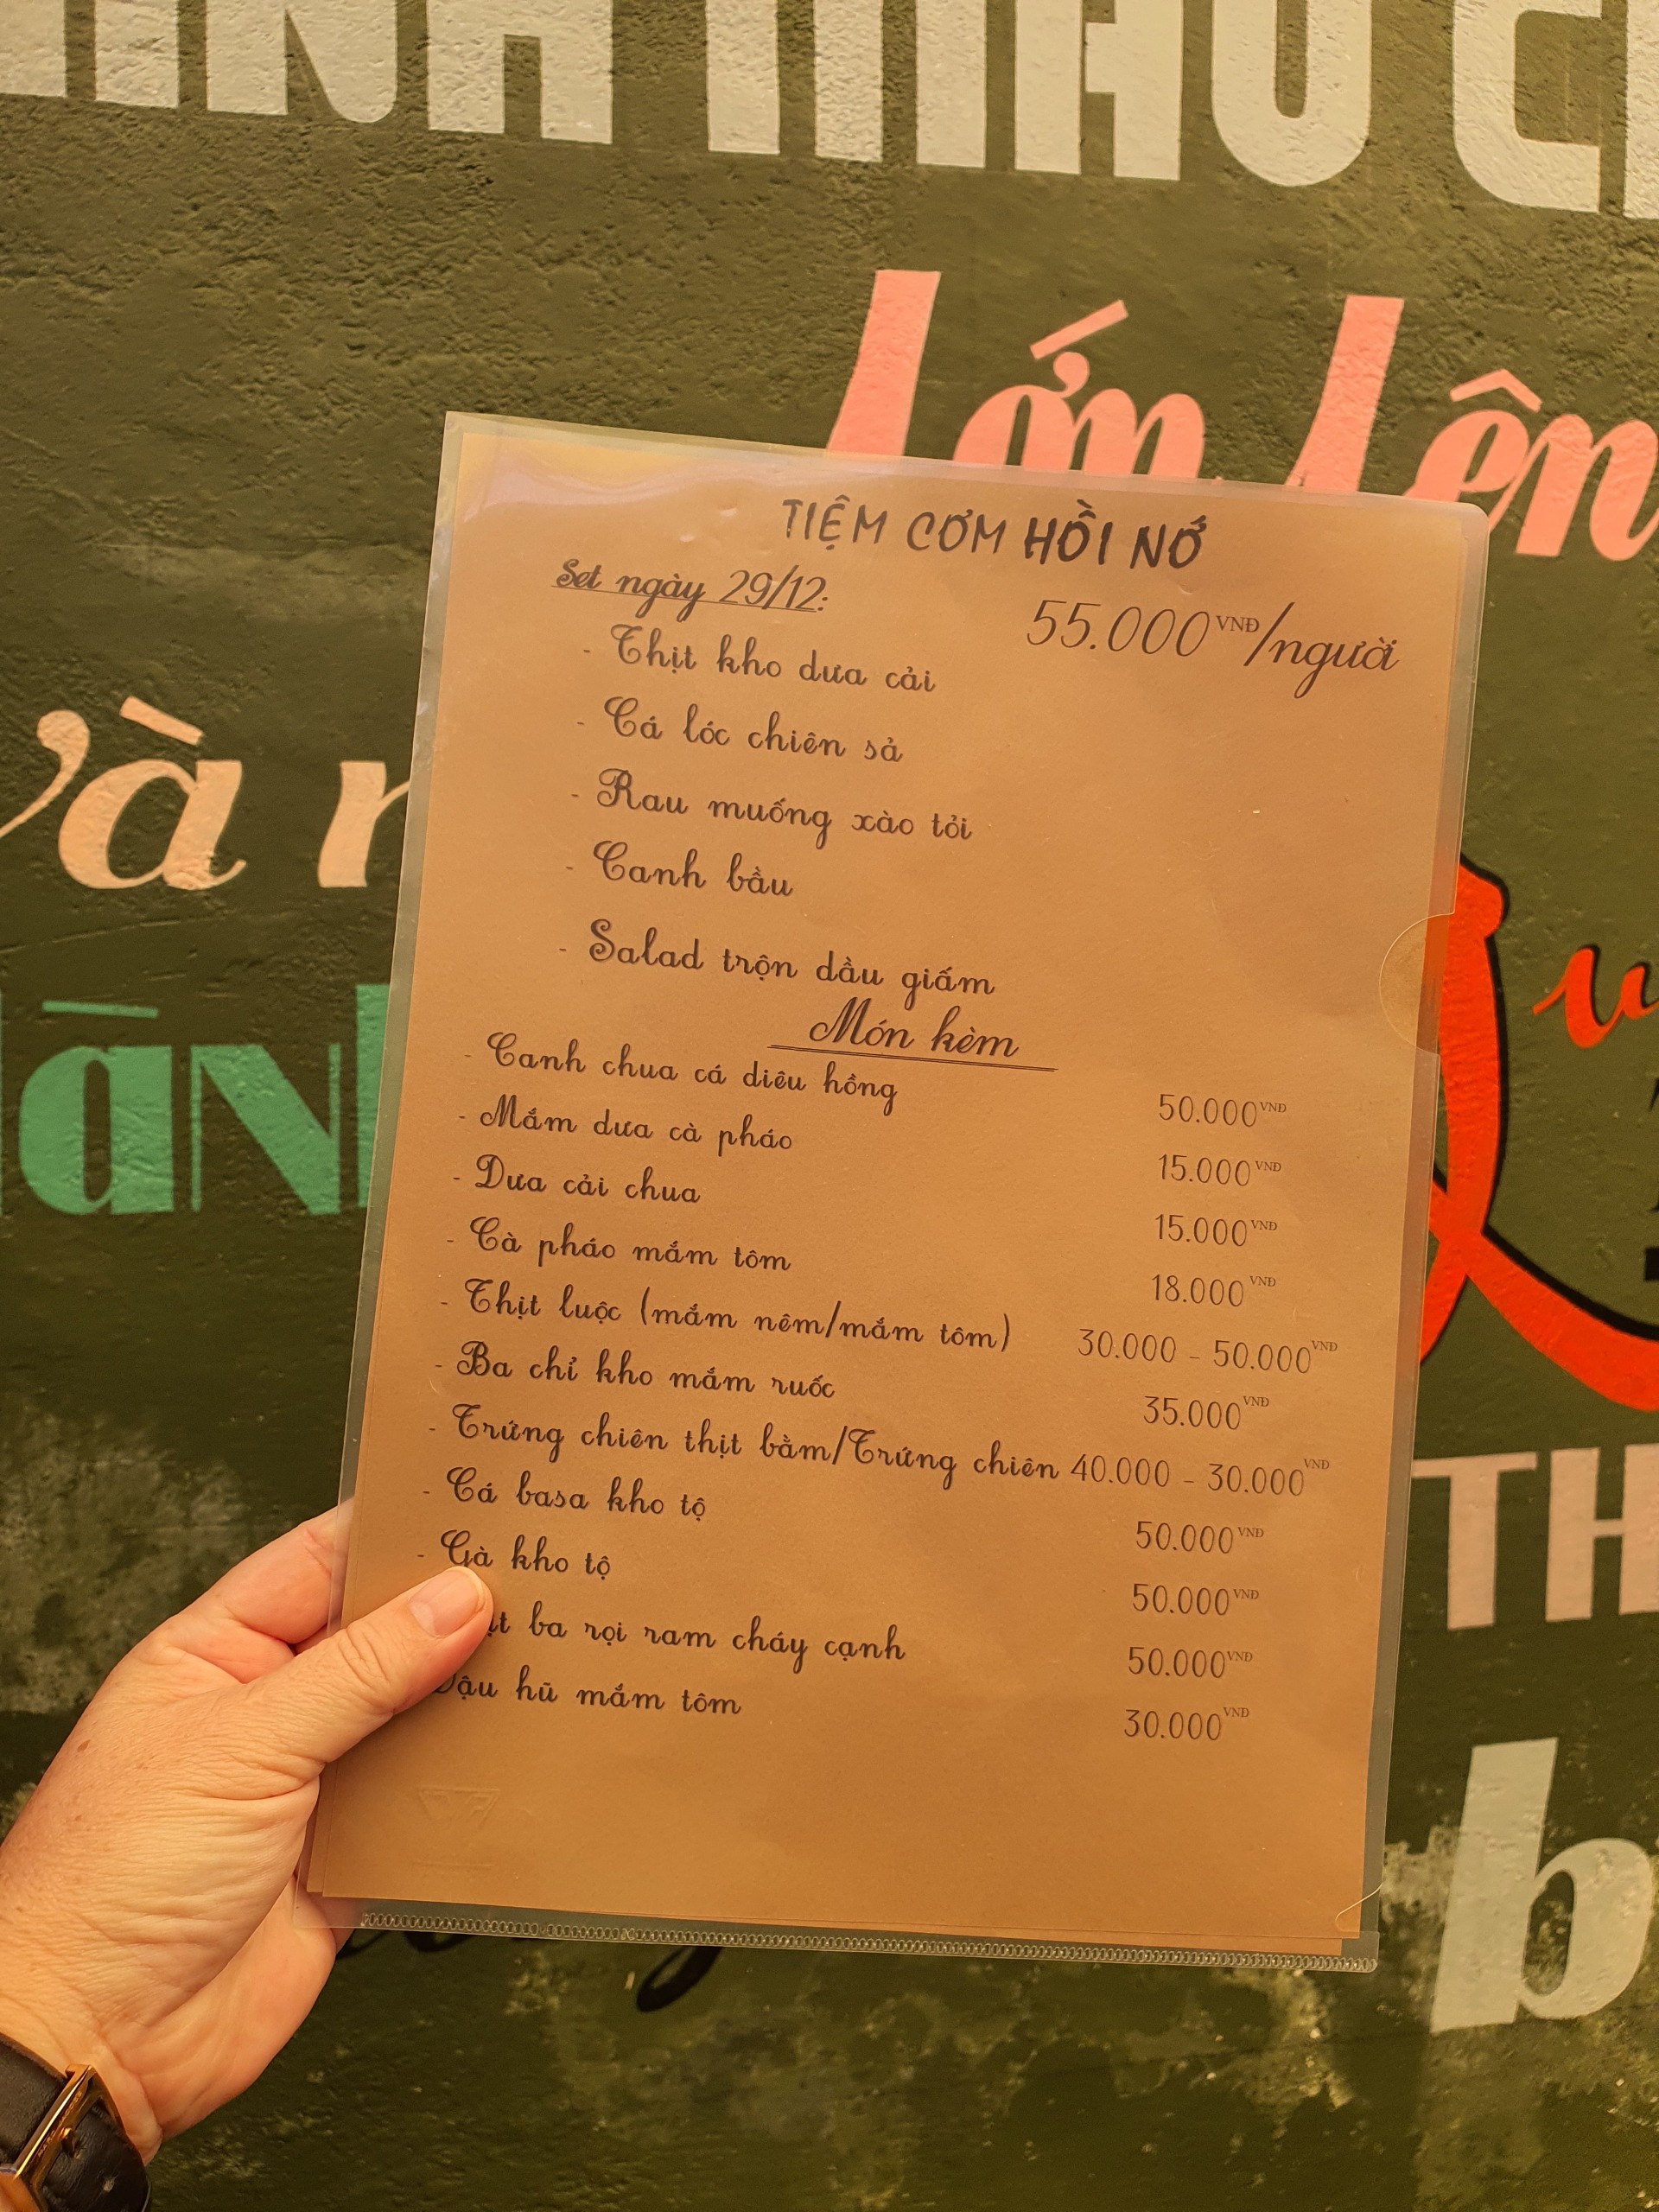 lớn lên
và
TIỆM CƠM HỒI NỚ
Set ngày 29/12:
55.000 VNĐ/người
- Thịt kho dưa cải
- Cá lóc chiên sả
- Rau muống xào tỏi
- Canh bầu
- Salad trộn dầu giấm
Món kèm
- Canh chua cá diêu hồng 50.000 VNĐ
- Mắm dưa cà pháo 15.000 VNĐ
- Dưa cải chua 15.000 VNĐ
- Cà pháo mắm tôm 18.000 VNĐ
- Thịt luộc (mắm nêm/mắm tôm) 30.000 - 50.000 VNĐ
- Ba chỉ kho mắm ruốc 35.000 VNĐ
- Trứng chiên thịt bằm/Trứng chiên 40.000 - 30.000 VNĐ
- Cá basa kho tộ 50.000 VNĐ
- Gà kho tộ 50.000 VNĐ
ba rọi ram cháy cạnh 50.000 VNĐ
Đậu hũ mắm tôm 30.000 VNĐ